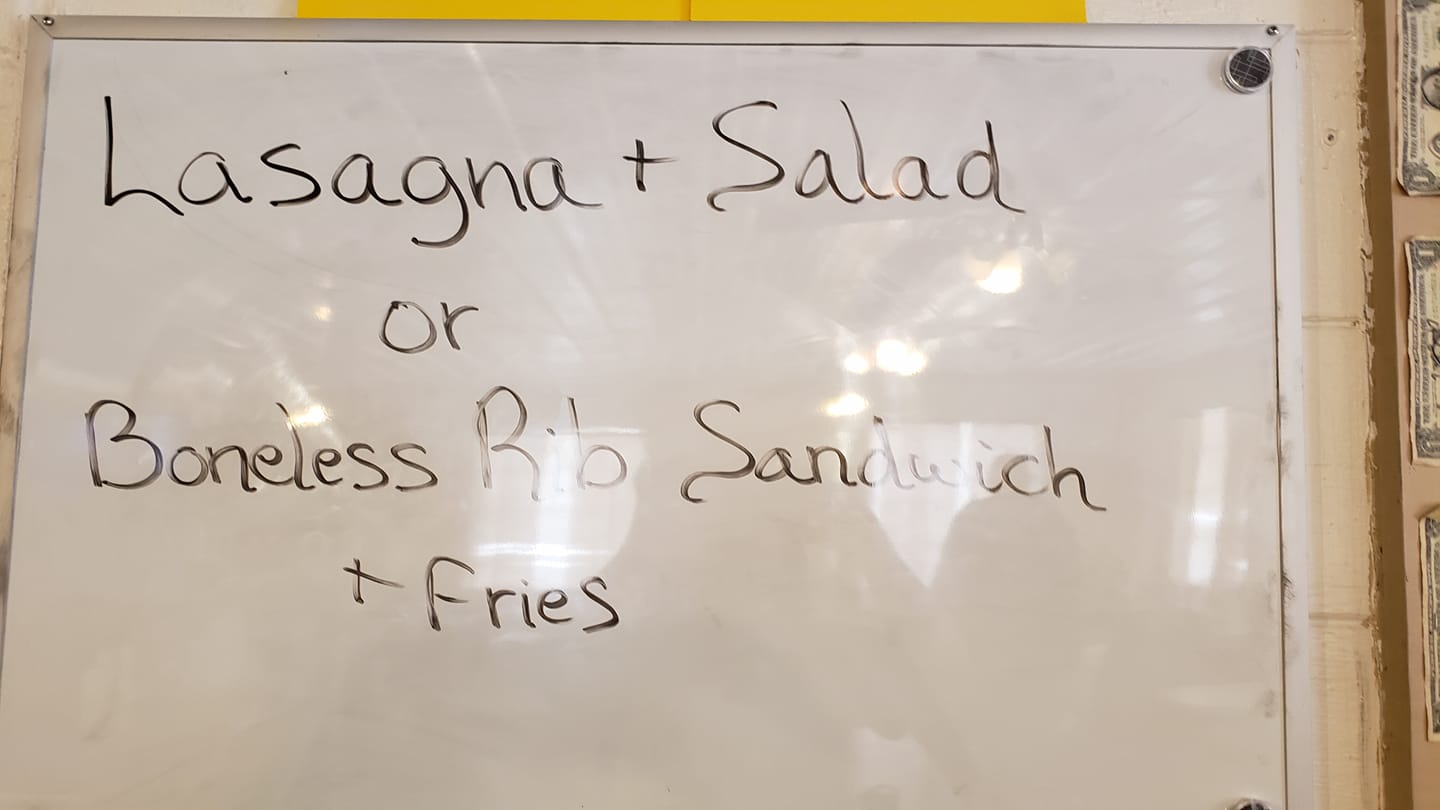 Lasagna + Salad
or
Boneless Rib Sandwich
+ Fries